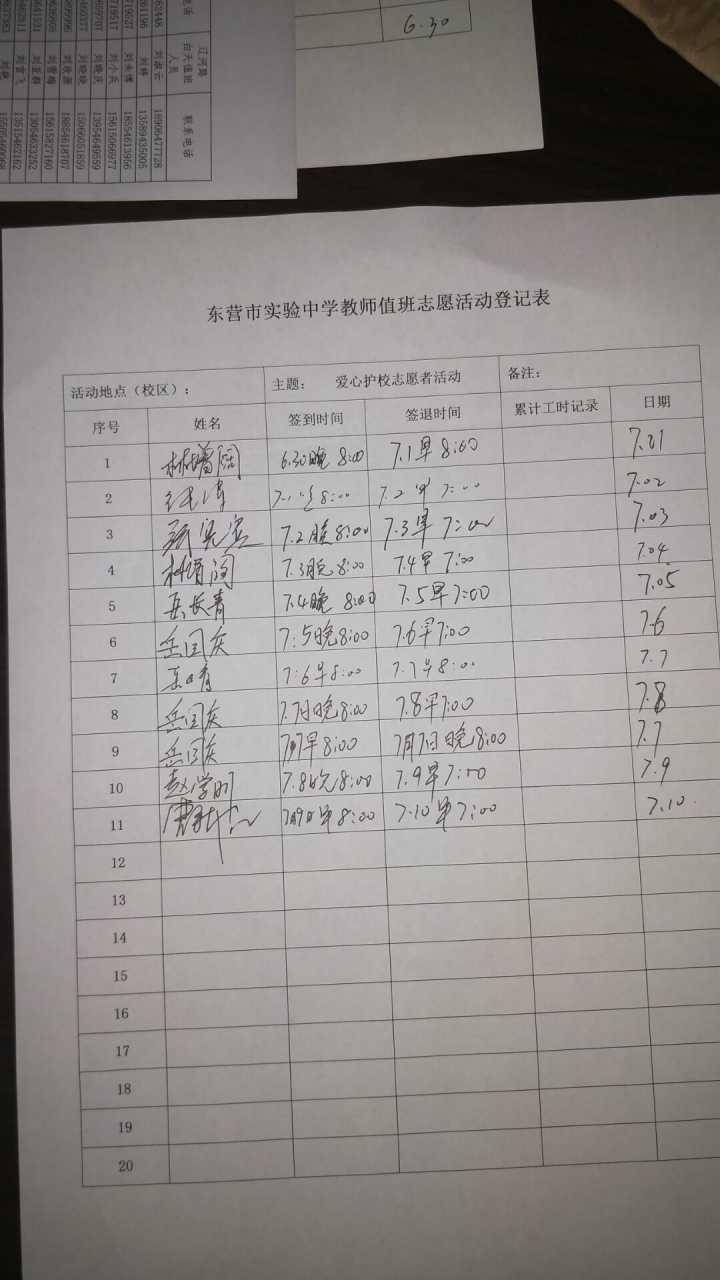 6.30
辽河路
白天值班人员
联系电话
刘淑云 18906477728
刘婷 13589435005
刘永博 18554613956
刘小兵 15615069977
刘晓庆 13954649559
刘晓晓 15066051859
刘欣源 18854618707
刘雪梅 15615827160
刘亚群 13054633252
刘雷飞 13515462162
东营市实验中学教师值班志愿活动登记表
活动地点（校区）： 主题： 爱心护校志愿者活动 备注：
序号 姓名 签到时间 签退时间 累计工时记录 日期
1 6.30晚 8:00 7.1早 8:00 7.01
2 7.1 8:00 7.2早 7:00 7.02
3 7.2晚 8:00 7.3早 7:00 7.03
4 7.3晚 8:00 7.4早 7:00 7.04
5 岳长青 7.4晚 8:00 7.5早7:00 7.05
6 岳国庆 7:5晚8:00 7.6早7:00 7.6
7 7:6早8:00 7.7早8:00 7.7
8 岳国庆 7.7日晚8:00 7.8早7:00 7.8
9 岳国庆 7月7早8:00 7月7日晚8:00 7.7
10 赵学明 7.8晚8:00 7.9早7:00 7.9
11 7月9日早8:00 7.10早7:00 7.10.
12
13
14
15
16
17
18
19
20